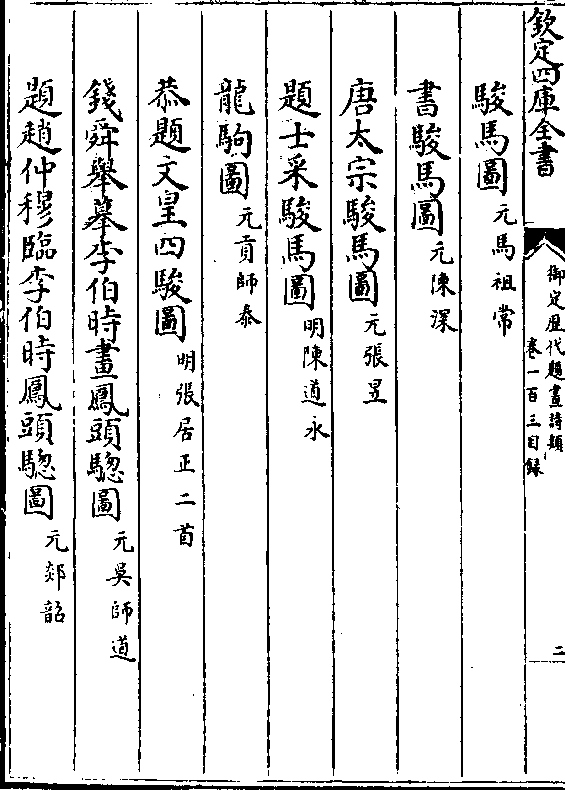 欽定四庫全書
御定歷代題畫詩類
卷一百三目錄
二
駿馬圖元馬祖常
書駿馬圖元陳深
唐太宗駿馬圖元張昱
題士采駿馬圖明陳道永
龍駒圖元貢師泰
恭題文皇四駿圖明張居正二首
錢舜舉摹李伯時畫鳳頭驄圖元吳師道
題趙仲穆臨李伯時鳳頭驄圖元郯韶